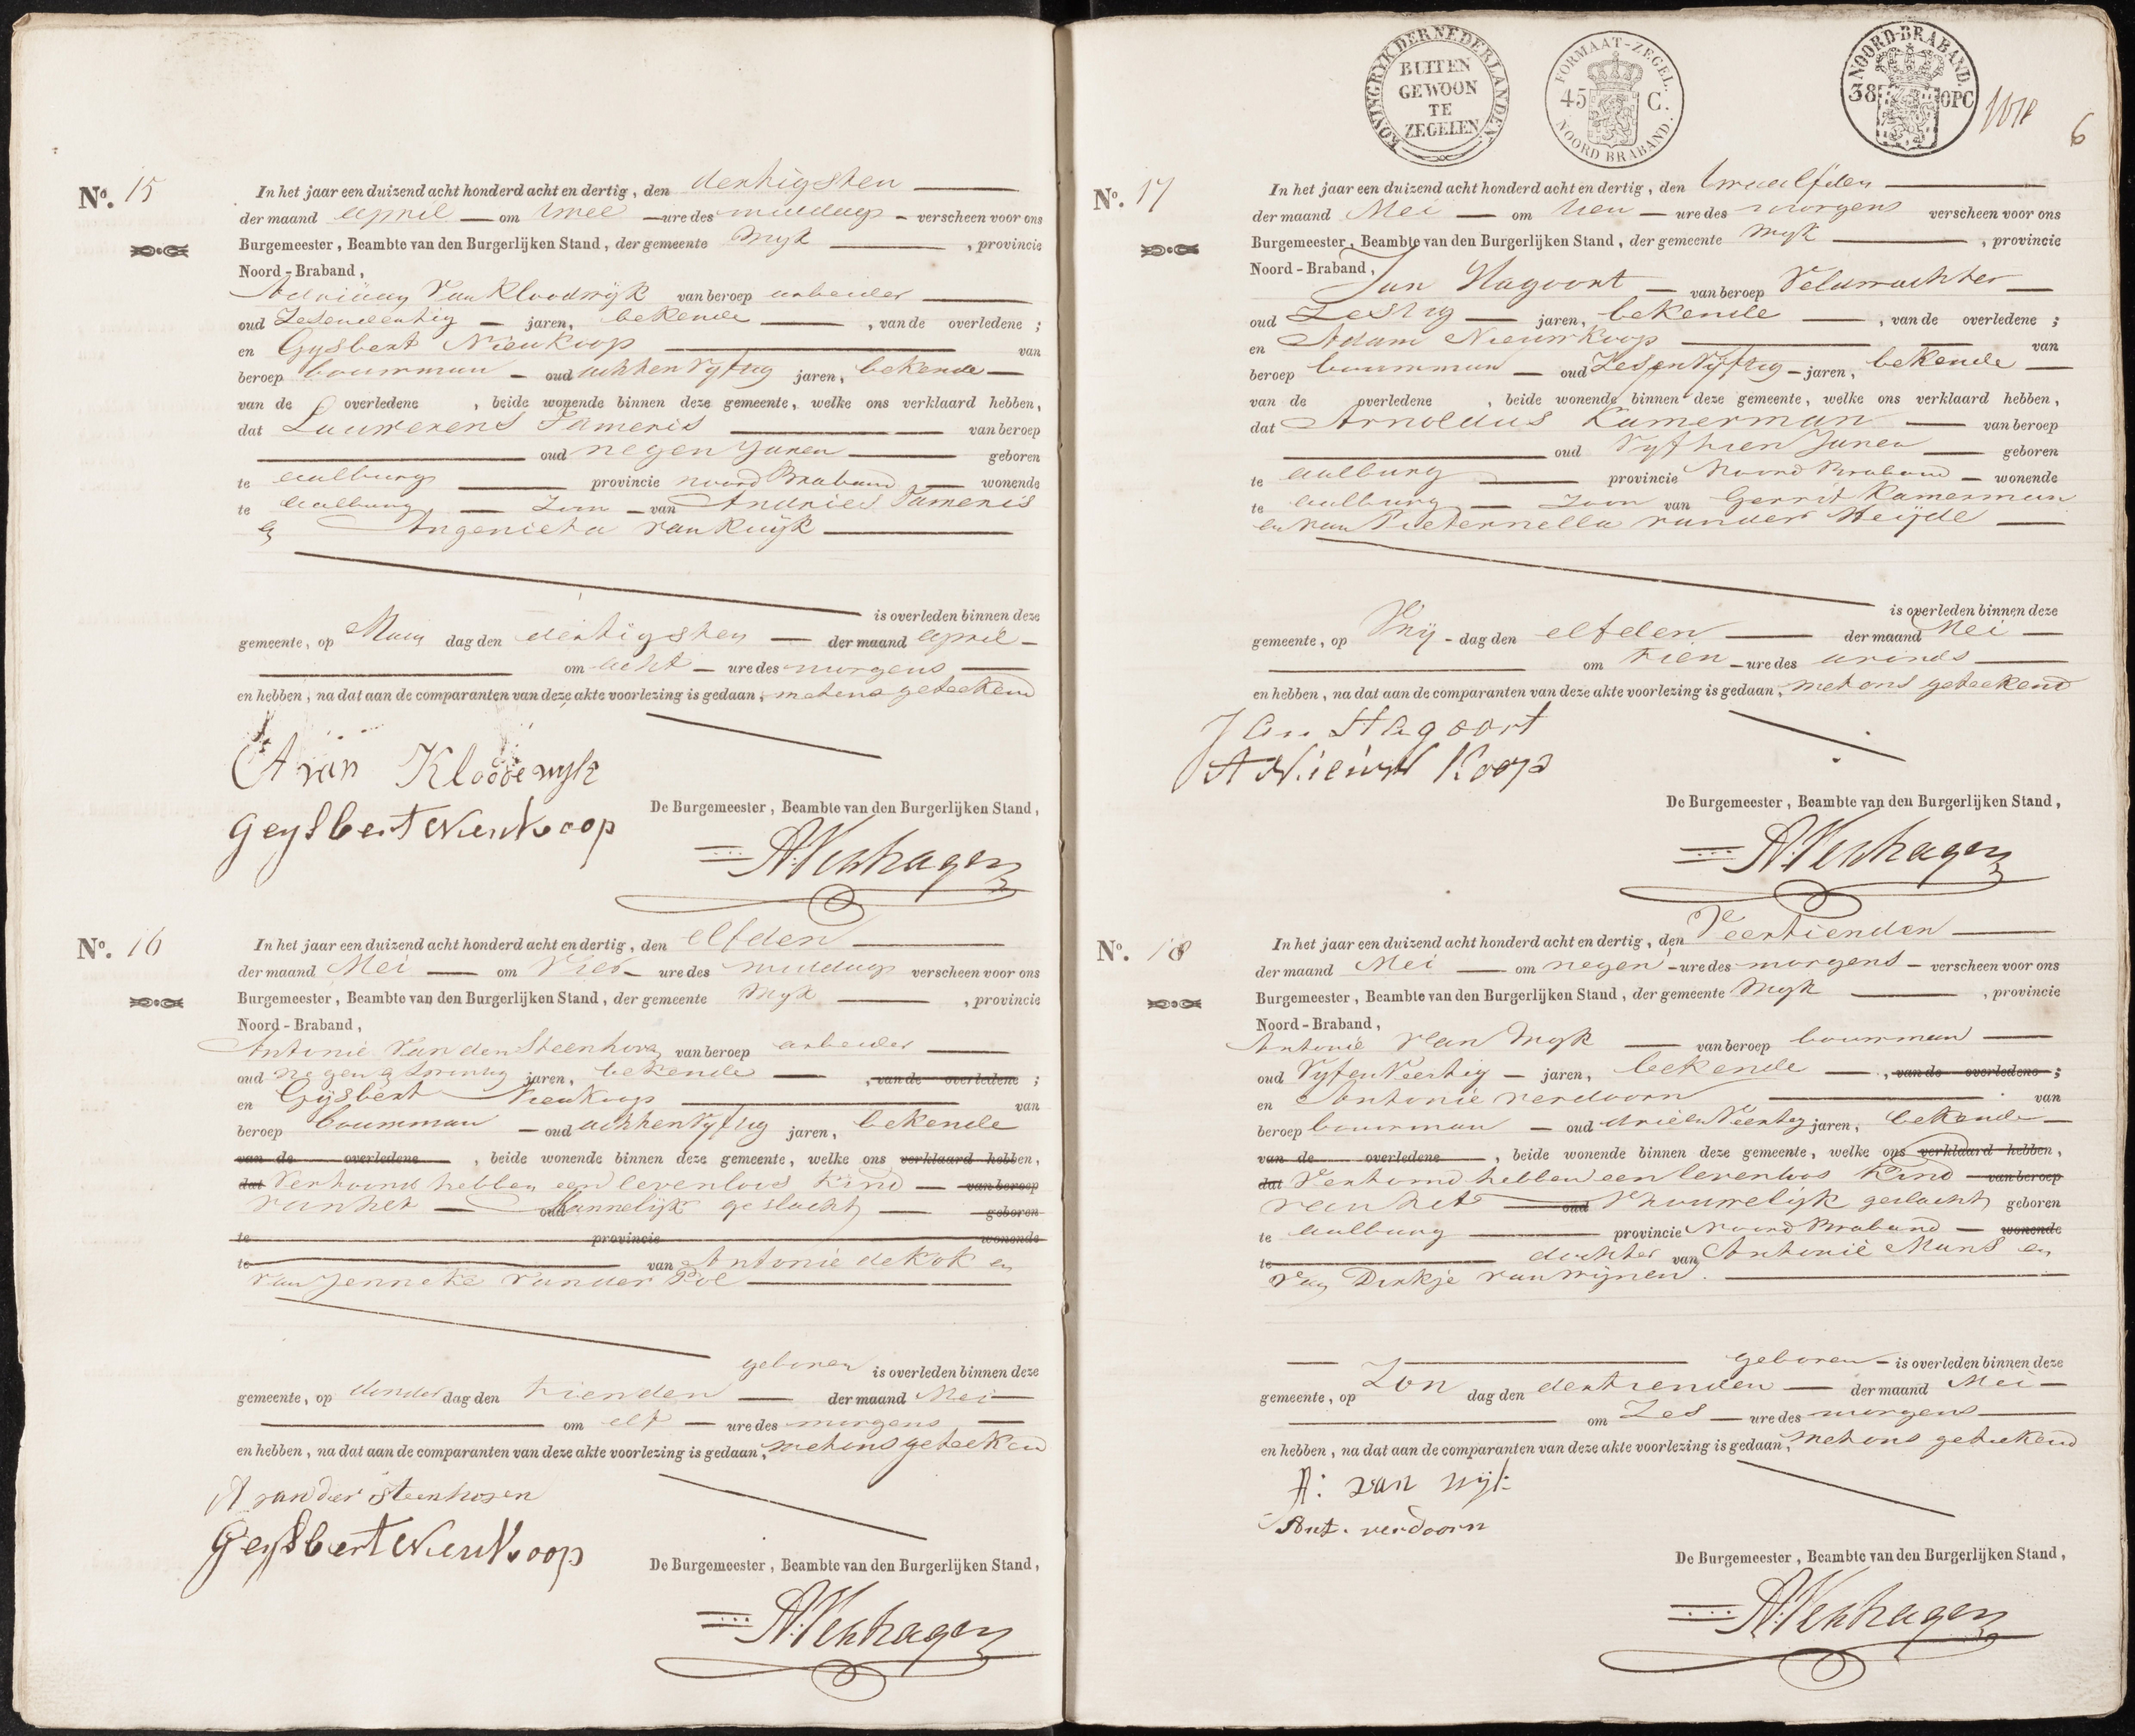 No. 15
In het jaar een duizend acht honderd acht en dertig, den dertigsten
der maand April om twee ure des middags verscheen voor ons
Burgemeester, Beambte van den Burgerlijken Stand, der gemeente Wyk , provincie
Noord-Braband,
Adriaan Van Kloodwyk van beroep arbeider
oud Zesendertig jaren, bekende , van de overledene ;
en Gysbert Nieukoop van
beroep bouwman oud achtenvyftig jaren, bekende
van de overledene , beide wonende binnen deze gemeente, welke ons verklaard hebben,
dat Lauwerens Tameris van beroep
oud negen Jaren geboren
te Aalburg provincie noord Braband wonende
te Aalburg Zoon van Andries Tameris
en Angenieta van Kuyk
is overleden binnen deze
gemeente, op Maan dag den dertigsten der maand April
om acht ure des morgens
en hebben, na dat aan de comparanten van deze akte voorlezing is gedaan, met ons geteekend
A van Kloodewyk
Geysbert Nieukoop
De Burgemeester, Beambte van den Burgerlijken Stand,
A: Verhagen
No. 16
In het jaar een duizend acht honderd acht en dertig, den elfden
der maand Mei om Vier ure des middags verscheen voor ons
Burgemeester, Beambte van den Burgerlijken Stand, der gemeente Wyk , provincie
Noord-Braband,
Antonie Van den Steenhoven van beroep arbeider
oud negen en twintig jaren, bekende , van de overledene ;
en Gysbert Nieukoop van
beroep bouwman oud achtenvyftig jaren, bekende
van de overledene , beide wonende binnen deze gemeente, welke ons verklaard hebben,
dat Vertoond hebben een levenloos Kind van beroep
van het oud Mannelijk geslacht geboren
te provincie wonende
te van Antonie de Kok en
van Jenneke van der Pol
geboren is overleden binnen deze
gemeente, op donder dag den tienden der maand Mei
om elf ure des morgens
en hebben, na dat aan de comparanten van deze akte voorlezing is gedaan, met ons geteekend
A van der Steenhoven
Geysbert Nieukoop
De Burgemeester, Beambte van den Burgerlijken Stand,
A: Verhagen
KONINGRYK DER NEDERLANDEN
BUITEN
GEWOON
TE
ZEGELEN
FORMAAT-ZEGEL.
45 C.
NOORD BRABAND.
NOORD-BRABAND.
38 OPC
6
No. 17
In het jaar een duizend acht honderd acht en dertig, den twaalfden
der maand Mei om tien ure des morgens verscheen voor ons
Burgemeester, Beambte van den Burgerlijken Stand, der gemeente Wyk , provincie
Noord-Braband,
Jan Hagoort van beroep Veldwachter
oud Zestig jaren, bekende , van de overledene ;
en Adam Nieuwkoop van
beroep bouwman oud Zesenvyftig jaren, bekende
van de overledene , beide wonende binnen deze gemeente, welke ons verklaard hebben,
dat Arnoldus Kamerman van beroep
oud Vyftien Jaren geboren
te Aalburg provincie Noord Braband wonende
te Aalburg Zoon van Gerrit Kamerman
en van Pieternella van der Heijde
is overleden binnen deze
gemeente, op Vrij dag den elfden der maand Mei
om tien ure des avonds
en hebben, na dat aan de comparanten van deze akte voorlezing is gedaan, met ons geteekend
Jan Hagoort
A Nieuw Koop
De Burgemeester, Beambte van den Burgerlijken Stand,
A: Verhagen
No. 18
In het jaar een duizend acht honderd acht en dertig, den Veertienden
der maand Mei om negen ure des morgens verscheen voor ons
Burgemeester, Beambte van den Burgerlijken Stand, der gemeente Wyk , provincie
Noord-Braband,
Antonie Van Wyk van beroep bouwman
oud VyfenVeertig jaren, bekende , van de overledene ;
en Antonie verdoorn van
beroep bouwman oud drieenVeertig jaren, bekende
van de overledene , beide wonende binnen deze gemeente, welke ons verklaard hebben,
dat Vertoond hebben een levenloos Kind van beroep
van het oud Vrouwelijk geslacht geboren
te Aalburg provincie Noord Braband wonende
te dochter van Antonie Mans en
van Dirkje van Wijnen.
geboren is overleden binnen deze
gemeente, op Zon dag den dertienden der maand Mei
om Zes ure des morgens
en hebben, na dat aan de comparanten van deze akte voorlezing is gedaan, met ons geteekend
A: van wijk
Ant. verdoorn
De Burgemeester, Beambte van den Burgerlijken Stand,
A: Verhagen